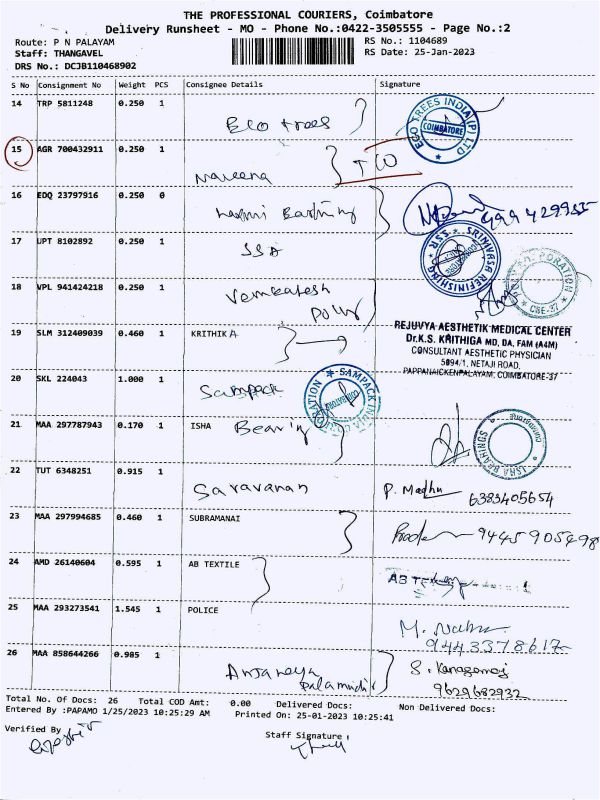 THE PROFESSIONAL COURIERS, Coimbatore
Delivery Runsheet - MO - Phone No.:0422-3505555 - Page No.:2
Route: P N PALAYAM
Staff: THANGAVEL
DRS No.: DCJB110468902
RS No.: 1104689
RS Date: 25-Jan-2023
S No Consignment No Weight PCS Consignee Details Signature
14 TRP 5811248 0.250 1 Eco trees
ECO TREES INDIA (P) LTD COIMBATORE
15 AGR 700432911 0.250 1 Naveena
16 EDQ 23797916 0.250 0
17 UPT 8102892 0.250 1 SSR
SSR SRINIVASA REFINISHING
18 VPL 941424218 0.250 1 Venkatesh
CBE-37
19 SLM 312409039 0.460 1 KRITHIK A
REJUVYA AESTHETIK MEDICAL CENTER
Dr.K.S. KRITHIGA MD, DA, FAM (A4M)
CONSULTANT AESTHETIC PHYSICIAN
5094/1, NETAJI ROAD,
PAPPANAICKENPALAYAM, COIMBATORE-37
20 SKL 224043 1.000 1 Sampack
21 MAA 297787943 0.170 1 ISHA Bearing
ISHA BEARINGS
22 TUT 6348251 0.915 1 Saravanan P. Madhu 6383405654
23 MAA 297994685 0.460 1 SUBRAMANAI 9445905498
24 AMD 26140604 0.595 1 AB TEXTILE
25 MAA 293273541 1.545 1 POLICE
26 MAA 858644266 0.985 1 Anjaneya
9629682932
Total No. Of Docs: 26 Total COD Amt: 0.00 Delivered Docs: Non Delivered Docs:
Entered By :PAPAMO 1/25/2023 10:25:29 AM Printed On: 25-01-2023 10:25:41
Verified By
Staff Signature :